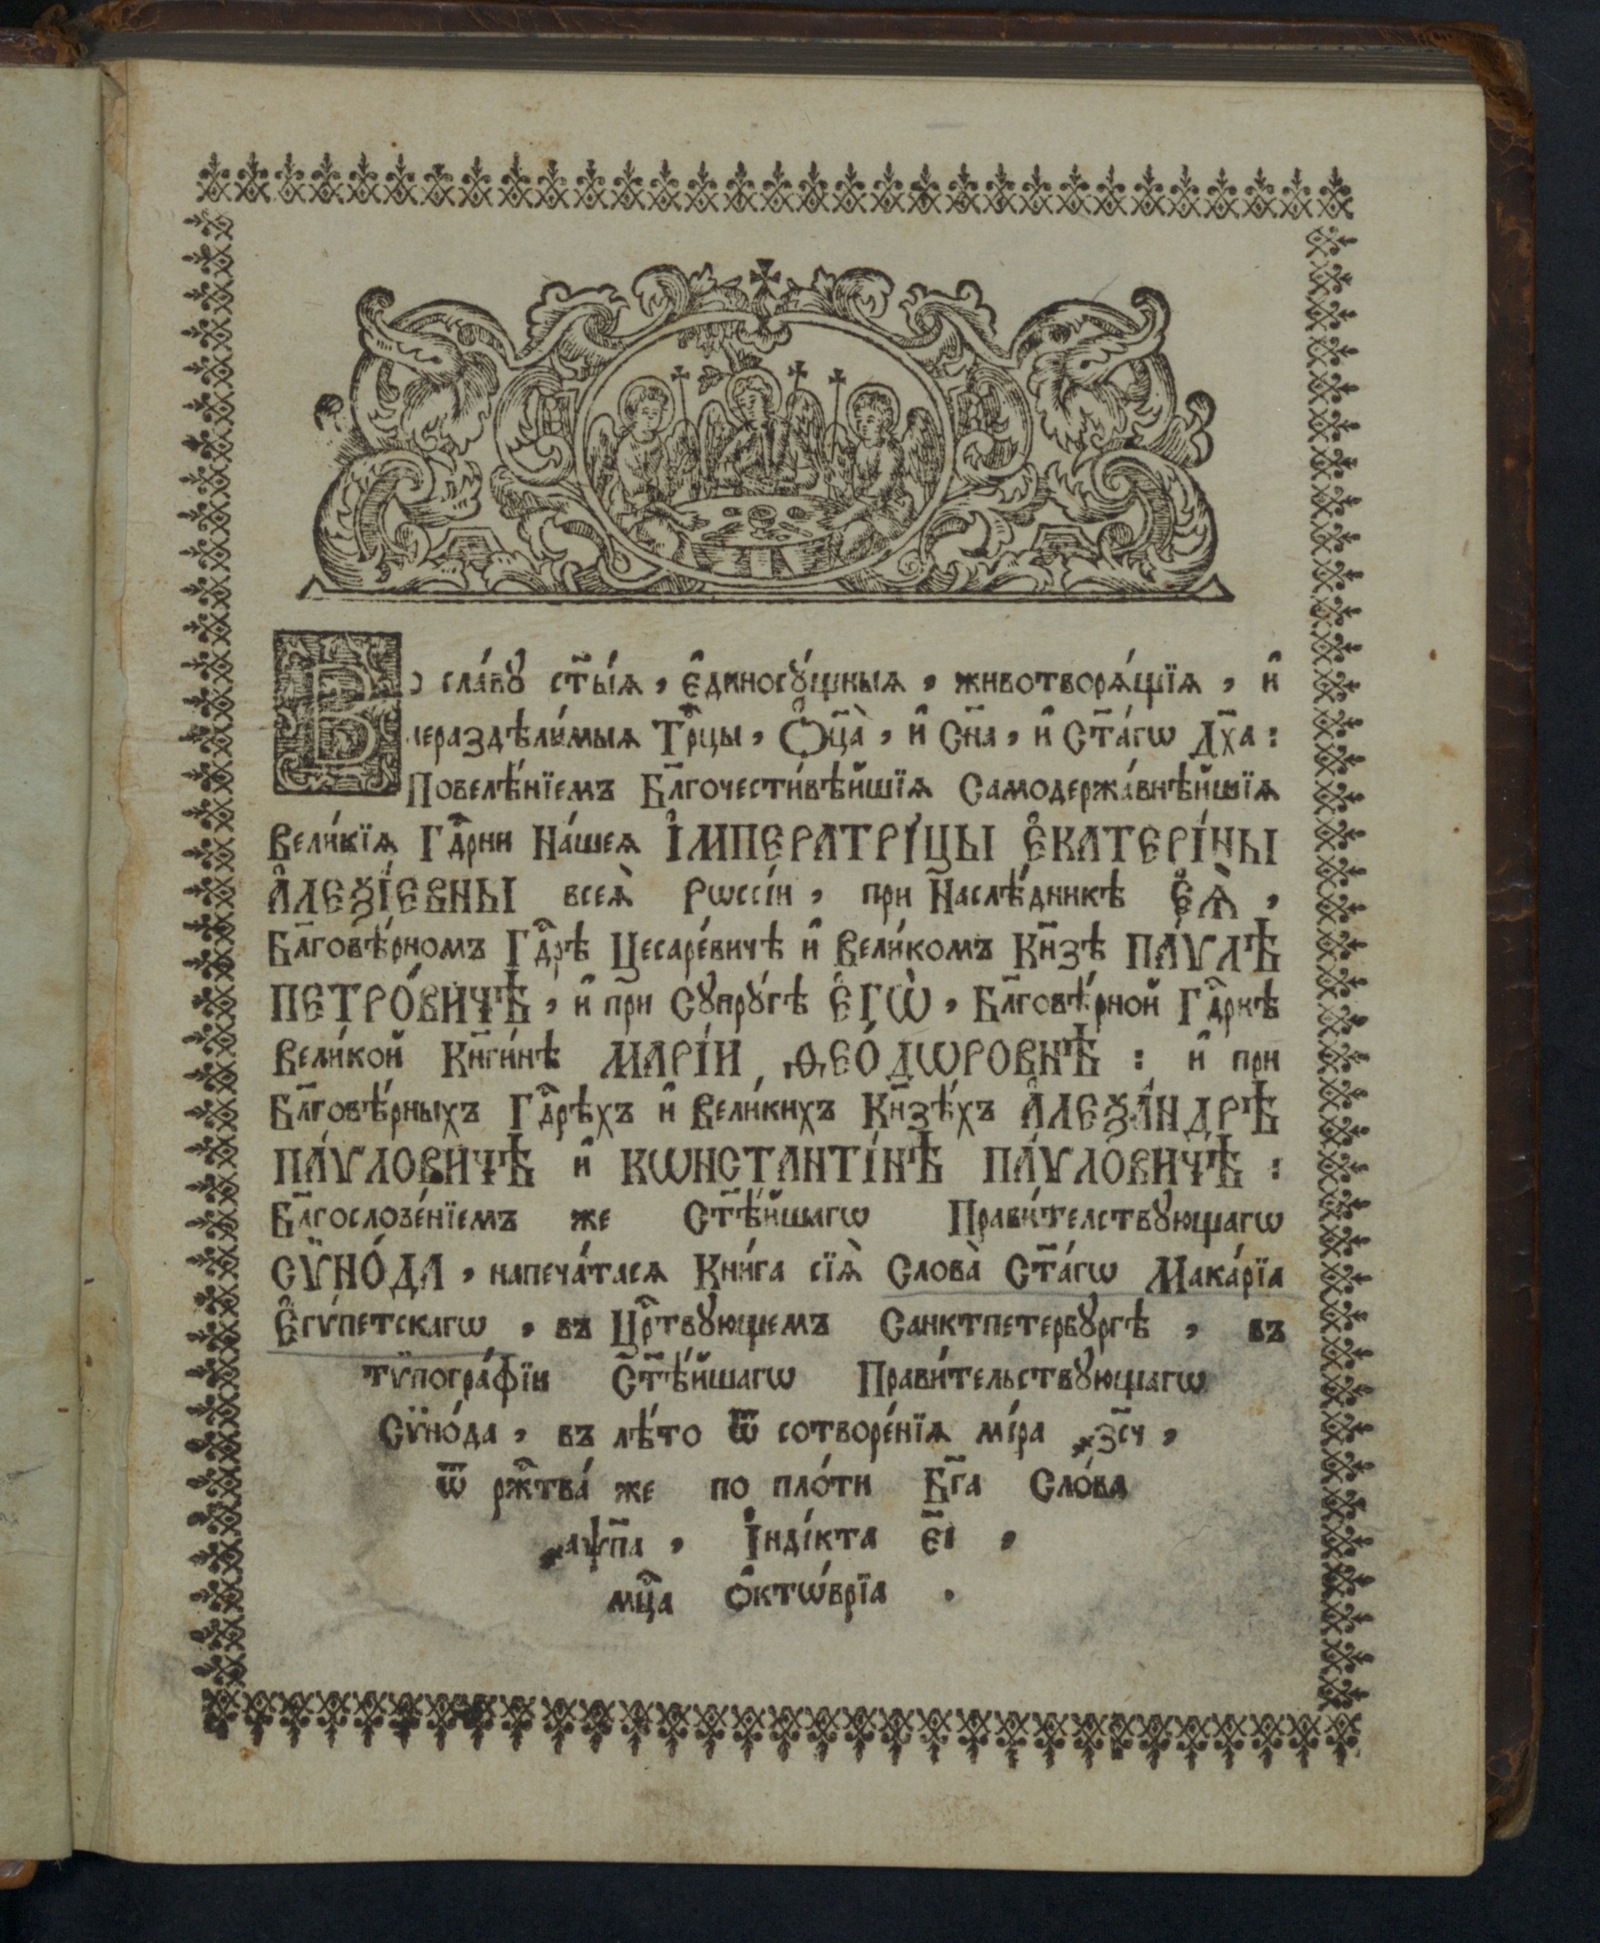 Во сла́вꙋ ст҃ы́ѧ, є҆диносꙋ́щныѧ, животворѧ́щїѧ, и҆
нераздѣли́мыѧ Трⷪ҇цы, Ѻ҆ц҃а̀, и҆ Сн҃а, и҆ Ст҃а́гѡ Дх҃а:
Повелѣ́нїемъ Бл҃гочести́вѣйшїѧ Самодержа́внѣйшїѧ
Вели́кїѧ Гдⷭ҇рни На́шеѧ І҆МПЕРАТРІ́ЦЫ Є҆КАТЕРІ́НЫ
А҆ЛЕѮІ́ЕВНЫ всеѧ̀ Рѡссі́и, при Наслѣ́дникѣ Є҆Ѧ̀,
Бл҃говѣ́рномъ Гдⷭ҇рѣ Цесаре́вичѣ и҆ Вели́комъ Кн҃зѣ ПА́ѴЛѢ
ПЕТРО́ВИЧѢ, и҆ при Сꙋпрꙋ́гѣ Є҆ГѠ̀, Бл҃говѣ́рной Гдⷭ҇рнѣ
Вели́кой Кн҃ги́нѣ МАРІ́И ѲЕО́ДѠРОВНѢ: и҆ при
Бл҃говѣ́рныхъ Гдⷭ҇рѣхъ и҆ Вели́кихъ Кн҃зѣ́хъ А҆ЛЕѮА́НДРѢ
ПА́ѴЛОВИЧѢ и҆ КѠНСТАНТІ́НѢ ПА́ѴЛОВИЧѢ:
Бл҃гослове́нїемъ же Ст҃ѣ́йшагѡ Прави́телствꙋющагѡ
СѴ̈НО́ДА, напеча́тасѧ Кни́га сїѧ̀ Слова̀ Ст҃а́гѡ Мака́рїа
Є҆гѵ́петскагѡ, въ Црⷭ҇твꙋющемъ Санктпетербꙋргѣ, въ
тѵ̈погра́фїи Ст҃ѣ́йшагѡ Прави́тельствꙋющагѡ
Сѵ̈но́да, въ лѣ́то ѿ сотворе́нїѧ мі́ра ҂зс҃ч,
ѿ ржⷭ҇тва́ же по пло́ти Бг҃а Сло́ва
҂аѱп҃а, І҆нді́кта є҃і,
мцⷭ҇а Ѻ҆ктѡ́врїа.